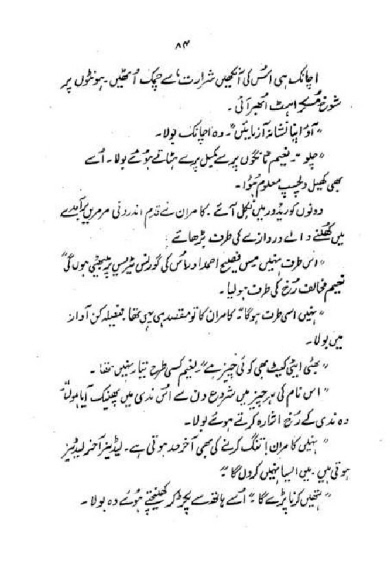 ۸۴
اچانک ہی اس کی آنکھیں شرارت سے چمک اٹھیں۔ ہونٹوں پر
شوخ مسکراہٹ ابھر آئی۔
"آؤ اپنا نشانہ آزمائیں"۔ وہ اچانک بولا۔
"چلو"۔ نعیم ٹانگوں پر سے کمبل پرے ہٹاتے ہوئے بولا۔ اُسے
بھی کھیل دلچسپ معلوم ہوا۔
دونوں کوریڈور میں نکل آئے۔ کامران نے قدم اندرونی مرمریں برآمدے
میں کھلنے والے دروازے کی طرف بڑھائے۔
"اس طرف نہیں میس فصیح احمد اور اس کی گورنس ٹیرس پر بیٹھی ہوں گی"
نعیم مخالف رخ کی طرف ہولیا۔
"نہیں اسی طرف ہوگا" کامران کا تو مقصد ہی یہی تھا فیصلہ کن آواز
میں بولا۔
"بھئی ایٹی کیٹ بھی کوئی چیز ہے"۔ نعیم کسی طرح تیار نہیں تھا۔
"اس نام کی ہر چیز میں شروع دن سے اس ندی میں پھینک آیا ہوں"
وہ ندی کے رخ اشارہ کرتے ہوئے بولا۔
"نہیں کامران تنگ کرنے کی بھی آخر حد ہوتی ہے۔ لیڈیز آخر لیڈیز
ہوتی ہیں۔ میں ایسا نہیں کروں گا"
"تمہیں کرنا پڑے گا" اُسے ہاتھ سے پکڑ کر کھینچتے ہوئے وہ بولا۔